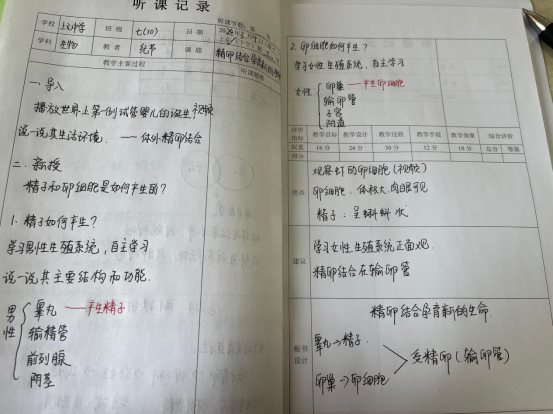 听课记录
听课节数：第
学校 上义中学 班级 七(10) 日期
学科 生物 教者 纪芳 课题 精卵结合孕育新的生命
教学主要过程
听课随想
一、导入
播放世界上第一例试管婴儿的诞生视频
说一说其生活环境. —— 体外精卵结合
二、新授
精子和卵细胞是如何产生的？
1. 精子如何产生？
学习男性生殖系统，自主学习
说一说其主要结构和功能.
男性
睾丸 —— 产生精子
输精管
前列腺
阴茎
2. 卵细胞如何产生？
学习女性生殖系统，自主学习
女性
卵巢 —— 产生卵细胞
输卵管
子宫
阴道
评价指标 教学目标 教学设计 教学过程 教学手段 教学效果 综合评价
权重 16分 24分 30分 12分 18分 总分 等第
得分
亮点
观察虾的卵细胞(视频)
卵细胞，体较大，肉眼可见
精子：呈蝌蚪状
建议
学习女性生殖系统正面观.
精卵结合在输卵管
板书设计
精卵结合孕育新的生命.
睾丸→精子.
卵巢→卵细胞
受精卵(输卵管)